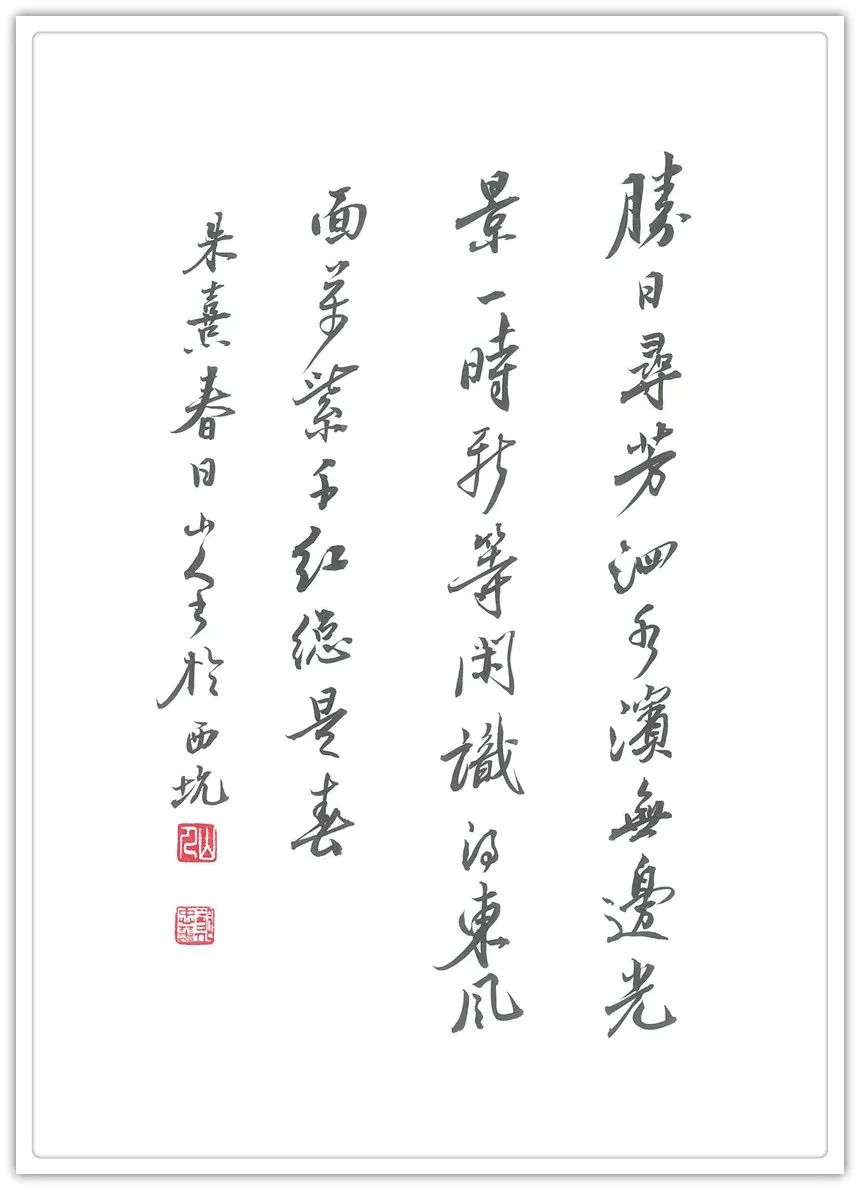 勝日尋芳泗水濱無邊光
景一時新等閑識得東風
面萬紫千紅總是春
朱熹春日山人書於西坑
山人